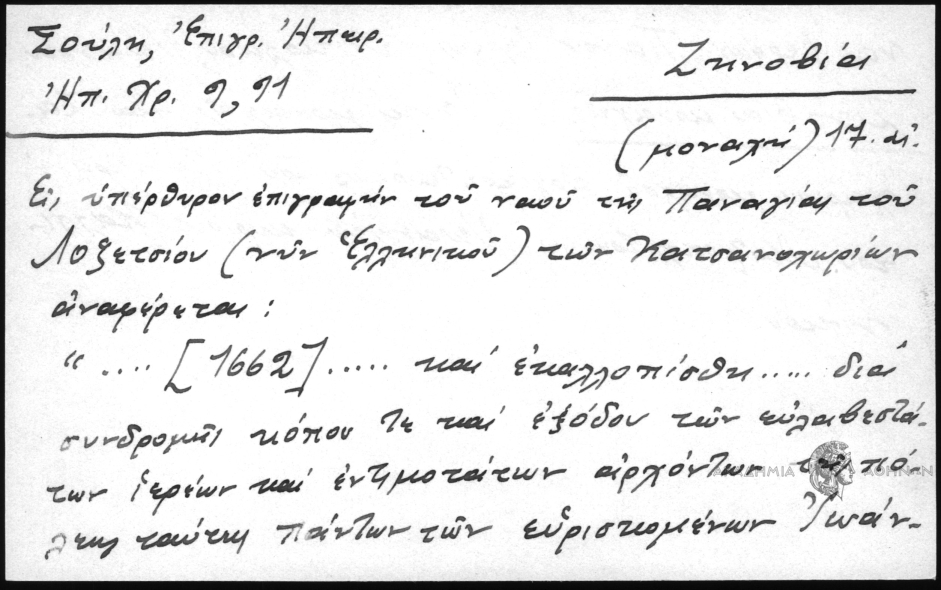 Σούλη, Ἐπιγρ. Ἠπειρ.
Ἠπ. Χρ. 9, 91
Ζηνοβία
(μοναχή) 17. αἰ.
Εἰς ὑπέρθυρον ἐπιγραφήν τοῦ ναοῦ τῆς Παναγίας τοῦ
Λοζετσίου (νῦν Ἑλληνικοῦ) τῶν Κατσανοχωρίων
ἀναφέρεται:
".... [1662]..... καί ἐκαλλοπίσθη..... διά
συνδρομῆς κόπου τε καί ἐξόδου τῶν εὐλαβεστά-
των ἱερέων καί ἐντιμοτάτων ἀρχόντων τῆς πό-
λεως ταύτης πάντων τῶν εὑρισκομένων Ἰωάν-
ΑΚΑΔΗΜΙΑ ΑΘΗΝΩΝ